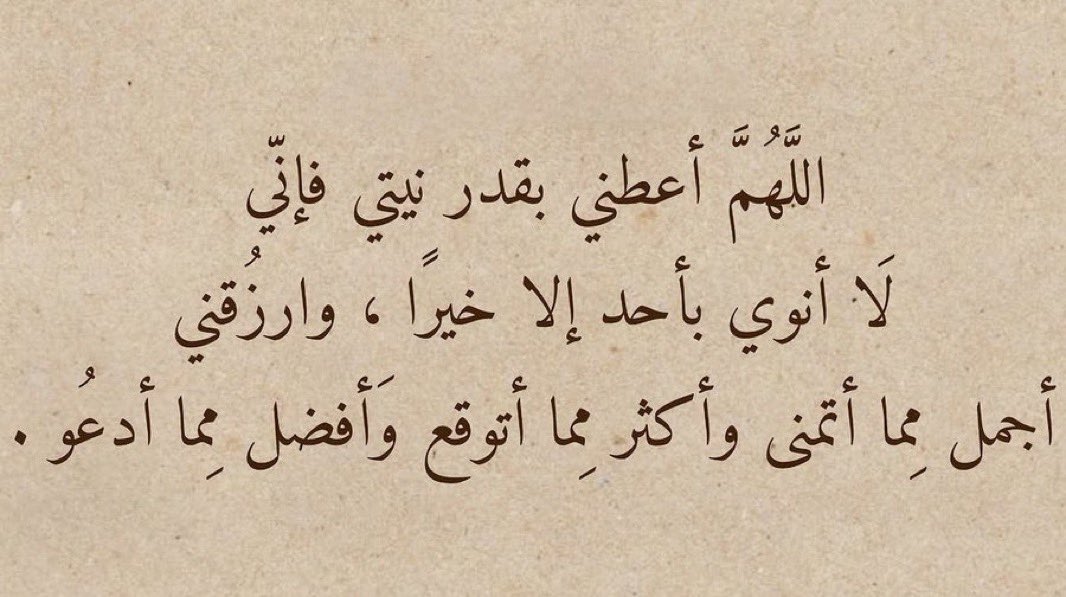 اللَّهُمَّ أعطني بقدر نيتي فإنّي
لَا أنوي بأحد إلا خيرًا ، وارزُقني
أجمل مِما أتمنى وأكثر مِما أتوقع وَأفضل مِما أدعُو .